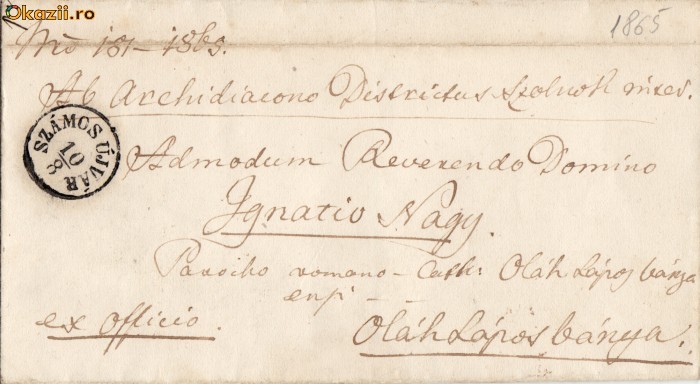 Okazii.ro
1865
Nro 181-1865.
Ab Archidiacono Districtus Szolnok
SZÁMOS ÚJVÁR
10
8
Admodum Reverendo Domino
Ignatio Nagy.
Parocho romano-Cath: Oláh Lápos bánya
ex officio.
Oláh Lápos bánya.